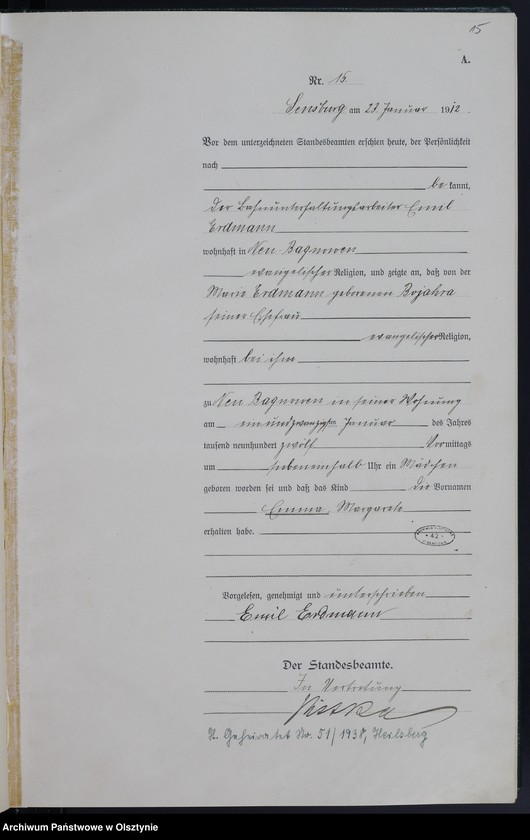 15
A.
Nr. 15
Sensburg am 23 Januar 1912
Vor dem unterzeichneten Standesbeamten erschien heute, der Persönlichkeit
nach
be kannt,
der Bahnunterhaltungsarbeiter Emil
Erdmann
wohnhaft in Neu Bagnowen
evangelischer Religion, und zeigte an, daß von der
Marie Erdmann geborenen Bojahra
seiner Ehefrau
evangelischer Religion,
wohnhaft bei ihm
zu Neu Bagnowen in seiner Wohnung
am einundzwanzigsten Januar des Jahres
tausend neunhundert zwölf Vormittags
um siebeneinhalb Uhr ein Mädchen
geboren worden sei und daß das Kind die Vornamen
Emma, Margarete
erhalten habe.
42
Vorgelesen, genehmigt und unterschrieben
Emil Erdmann
Der Standesbeamte.
In Vertretung
Geheiratet Nr. 51/1938, Heilsberg
Archiwum Państwowe w Olsztynie